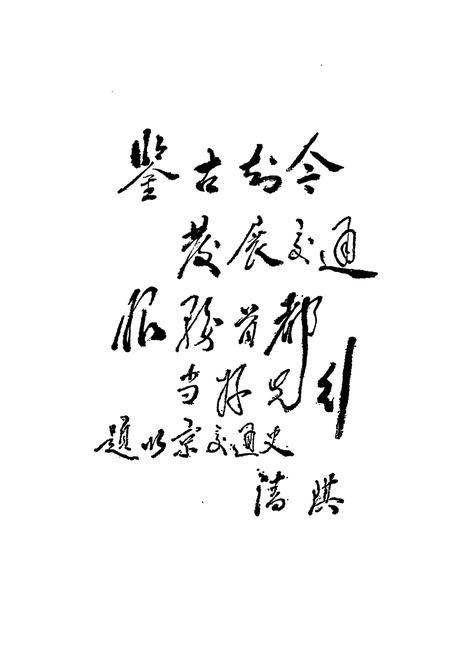 鉴古知今
发展交通
服务首都
当好先行
题北京交通史
潘琪